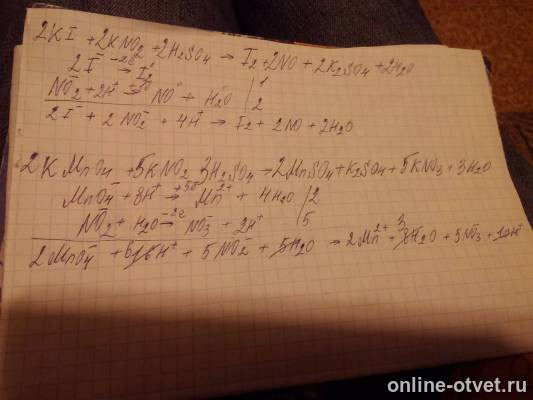 2KI + 2KNO2 + 2H2SO4 → I2 + 2NO + 2K2SO4 + 2H2O
2I⁻ -2e→ I2⁰ | 1
NO2⁻ + 2H⁺ → NO + H2O | 2
2I⁻ + 2NO2⁻ + 4H⁺ → I2 + 2NO + 2H2O
2KMnO4 + 5KNO2 3H2SO4 → 2MnSO4 + K2SO4 + 5KNO3 + 3H2O
MnO4⁻ + 8H⁺ +5e→ Mn²⁺ + 4H2O | 2
NO2⁻ + H2O -2e→ NO3⁻ + 2H⁺ | 5
2MnO4⁻ + 6 16H⁺ + 5NO2⁻ + 5H2O → 2Mn²⁺ + 3 8H2O + 5NO3⁻ + 10H⁺
online-otvet.ru